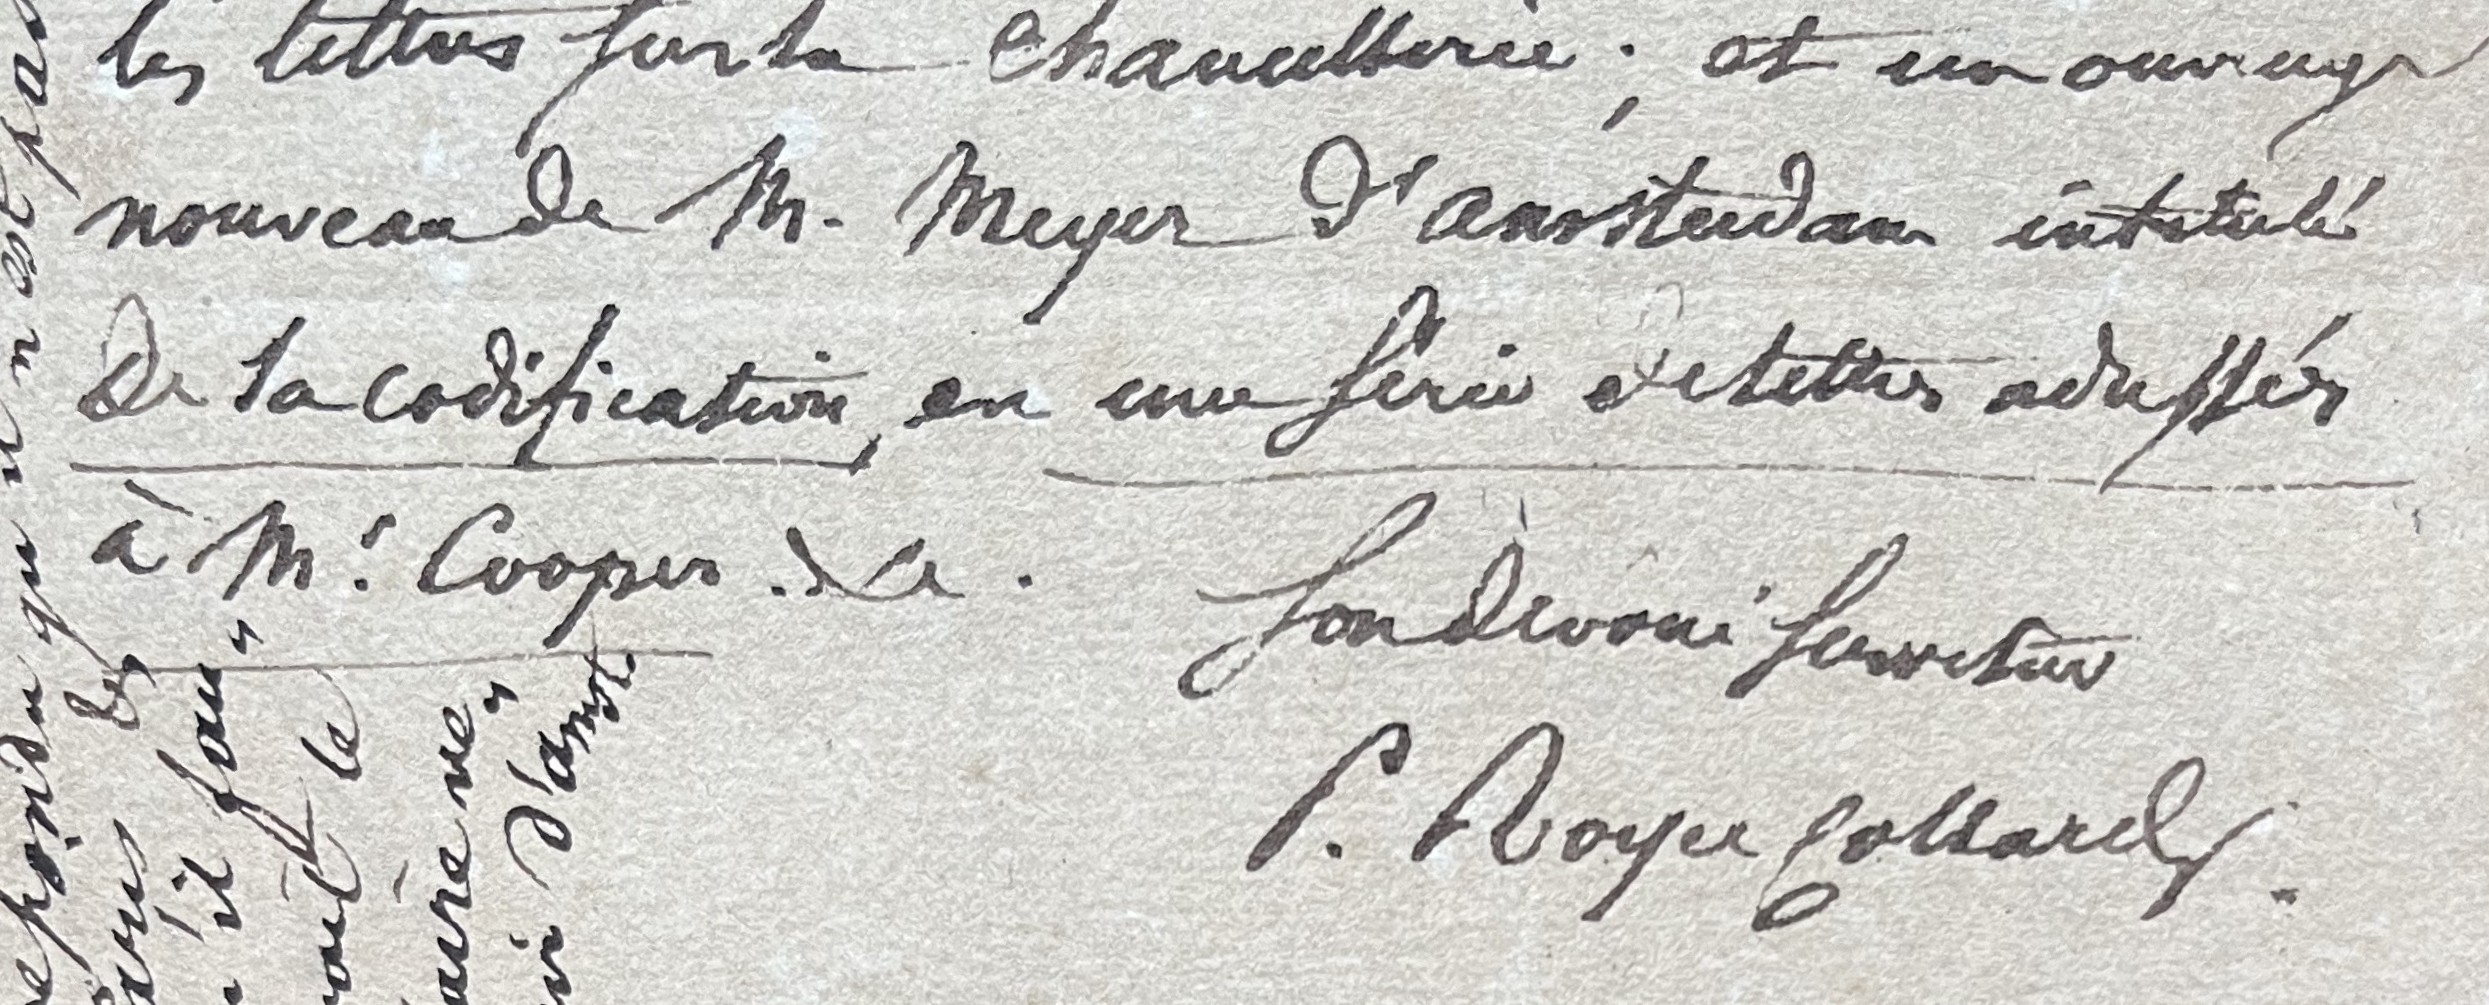 les lettres sur la Chancellerie; et un ouvrage
nouveau de M. Meyer d'amsterdam intitulé
De la codification, en une série de lettres adressées
à Mr. Cooper. &a.
son dévoué serviteur
P. Royer Collard.
répondu qu'il n'est pas
des
qu'il faut
le
d'amst